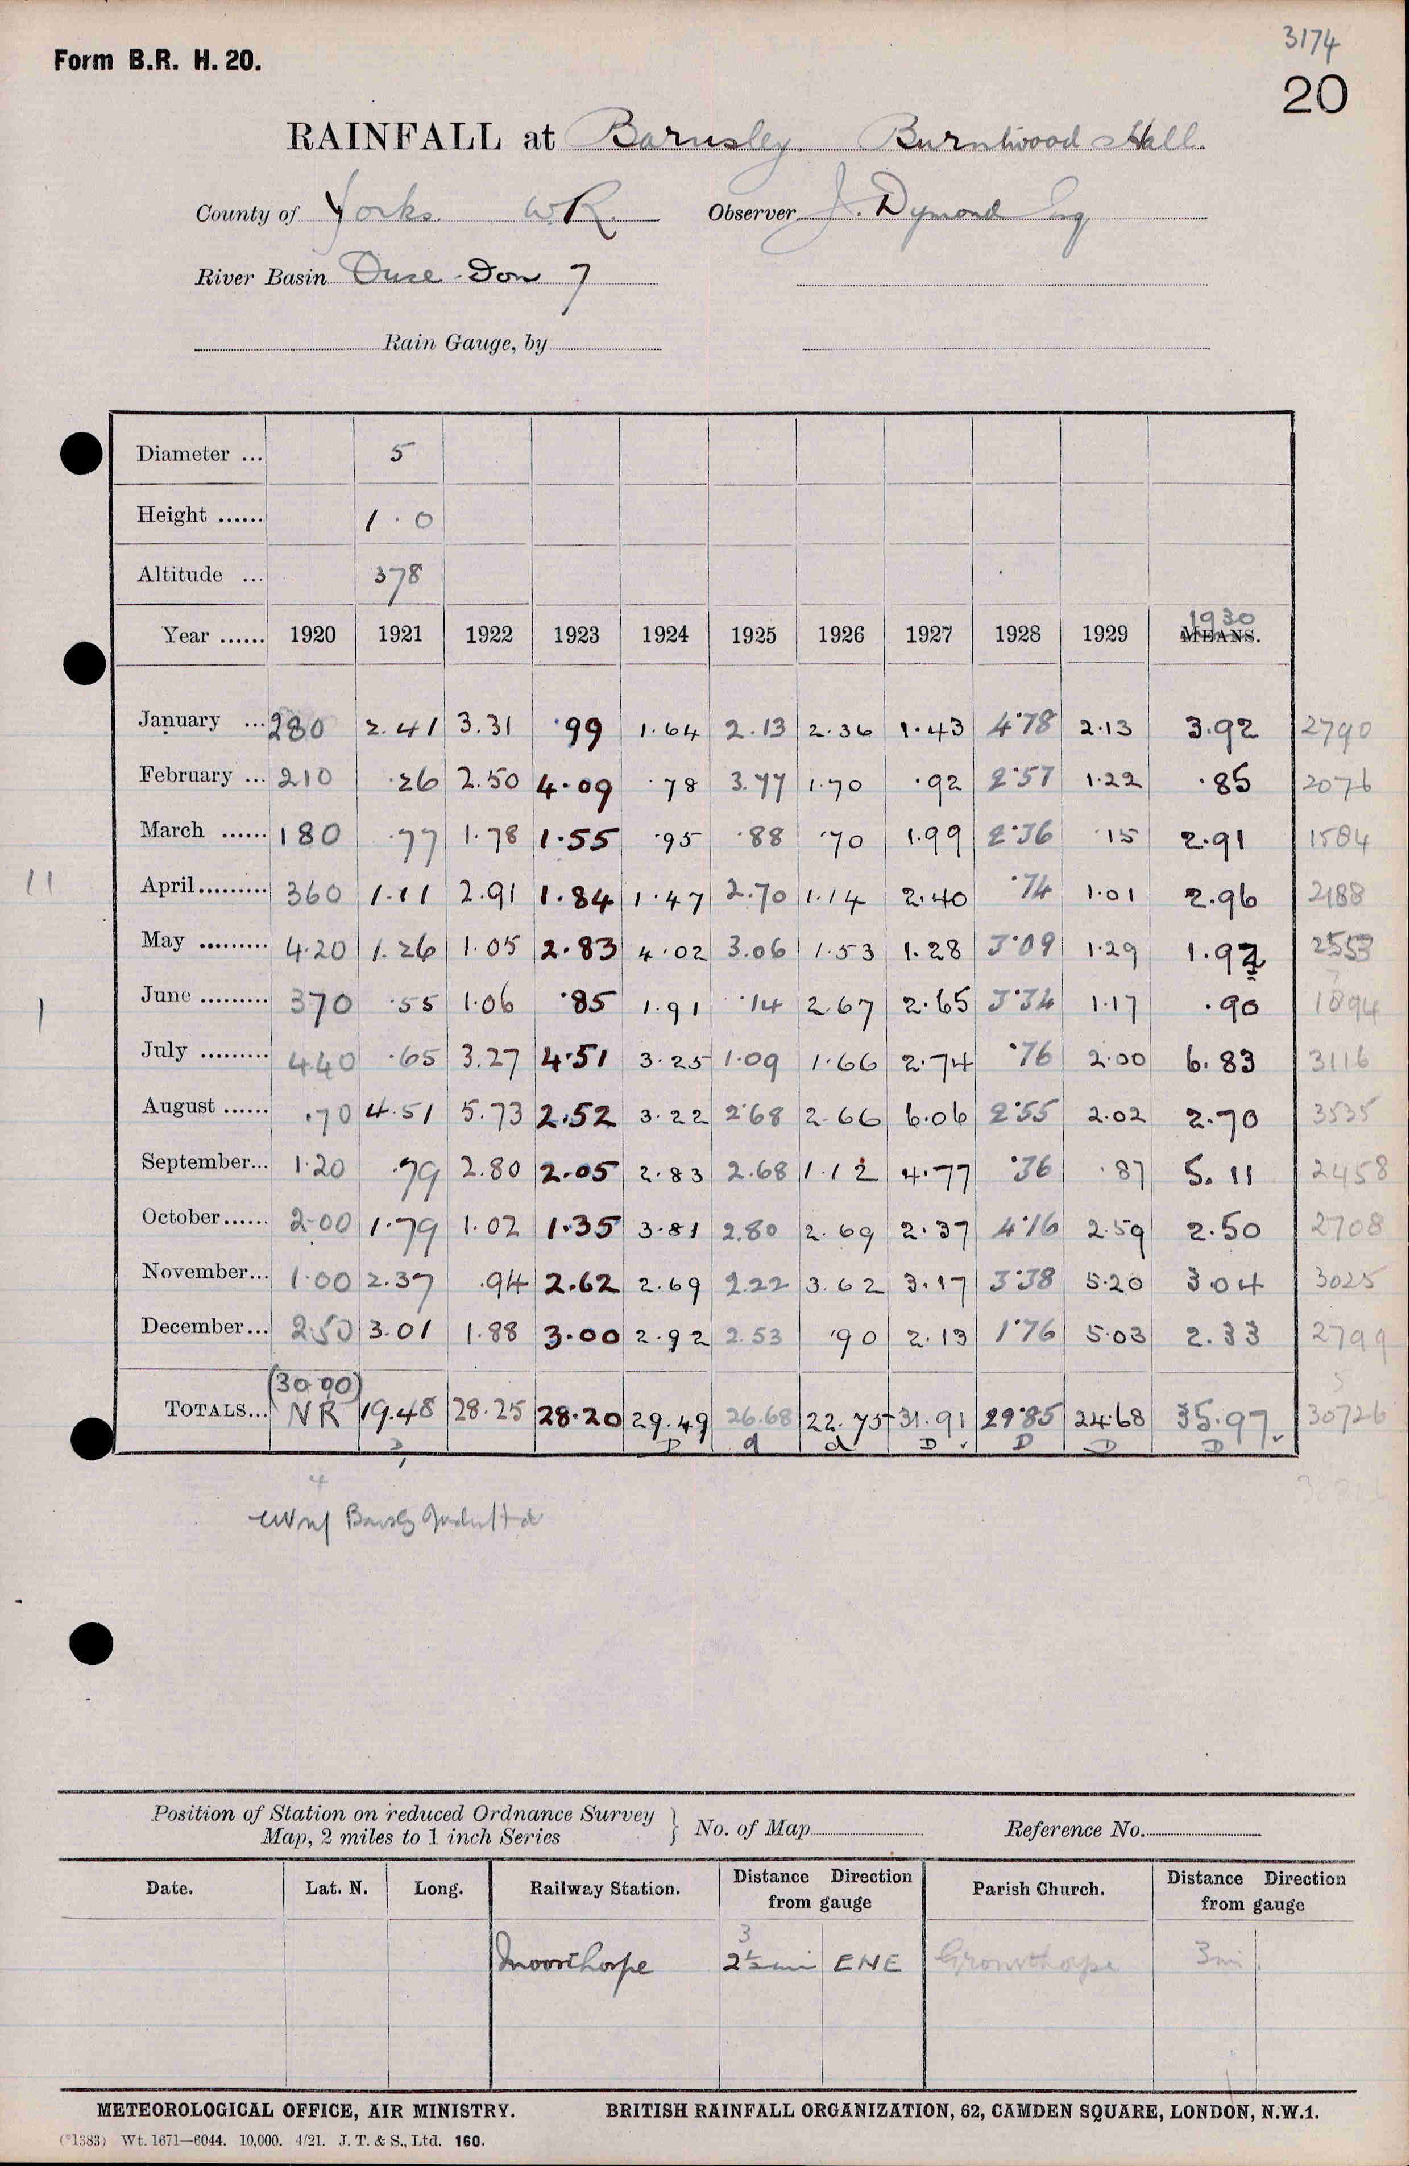 3174
Form B.R. H. 20.
20
RAINFALL at Barnsley Burntwood Hall.
County of Yorks. W.R. Observer J. Dymond Esq
River Basin Ouse - Don 7
Rain Gauge, by
Diameter ... 5
Height ...... 1.0
Altitude ... 378
1930
Year ...... 1920 1921 1922 1923 1924 1925 1926 1927 1928 1929 MEANS.
January ... 280 2.41 3.31 .99 1.64 2.13 2.36 1.43 4.78 2.13 3.92 2790
February ... 210 .26 2.50 4.09 .78 3.77 1.70 .92 2.57 1.22 .85 2076
March ...... 180 .77 1.78 1.55 .95 .88 .70 1.99 2.36 .15 2.91 1584
April......... 360 1.11 2.91 1.84 1.47 2.70 1.14 2.40 .74 1.01 2.96 2188
May ......... 4.20 1.26 1.05 2.83 4.02 3.06 1.53 1.28 3.09 1.29 1.92 2553
June ......... 370 .55 1.06 .85 1.91 .14 2.67 2.65 3.34 1.17 .90 1894
July ......... 440 .65 3.27 4.51 3.25 1.09 1.66 2.74 .76 2.00 6.83 3116
August ...... .70 4.51 5.73 2.52 3.22 2.68 2.66 6.06 2.55 2.02 2.70 3535
September... 1.20 .79 2.80 2.05 2.83 2.68 1.12 4.77 .36 .87 5.11 2458
October...... 2.00 1.79 1.02 1.35 3.81 2.80 2.69 2.37 4.16 2.59 2.50 2708
November... 1.00 2.37 .94 2.62 2.69 2.22 3.62 3.17 3.38 5.20 3.04 3025
December... 2.50 3.01 1.88 3.00 2.92 2.53 .90 2.13 1.76 5.03 2.33 2799
(30.00)
TOTALS... NR 19.48 28.25 28.20 29.49 26.68 22.75 31.91 29.85 24.68 35.97 30726
D D d d D D D D
Position of Station on reduced Ordnance Survey
Map, 2 miles to 1 inch Series } No. of Map Reference No.
Date. Lat. N. Long. Railway Station. Distance Direction from gauge Parish Church. Distance Direction from gauge
3
Moorthorpe 2½ mi ENE 3mi
METEOROLOGICAL OFFICE, AIR MINISTRY. BRITISH RAINFALL ORGANIZATION, 62, CAMDEN SQUARE, LONDON, N.W.1.
(*1383) Wt. 1671—6044. 10,000. 4/21. J. T. & S., Ltd. 160.